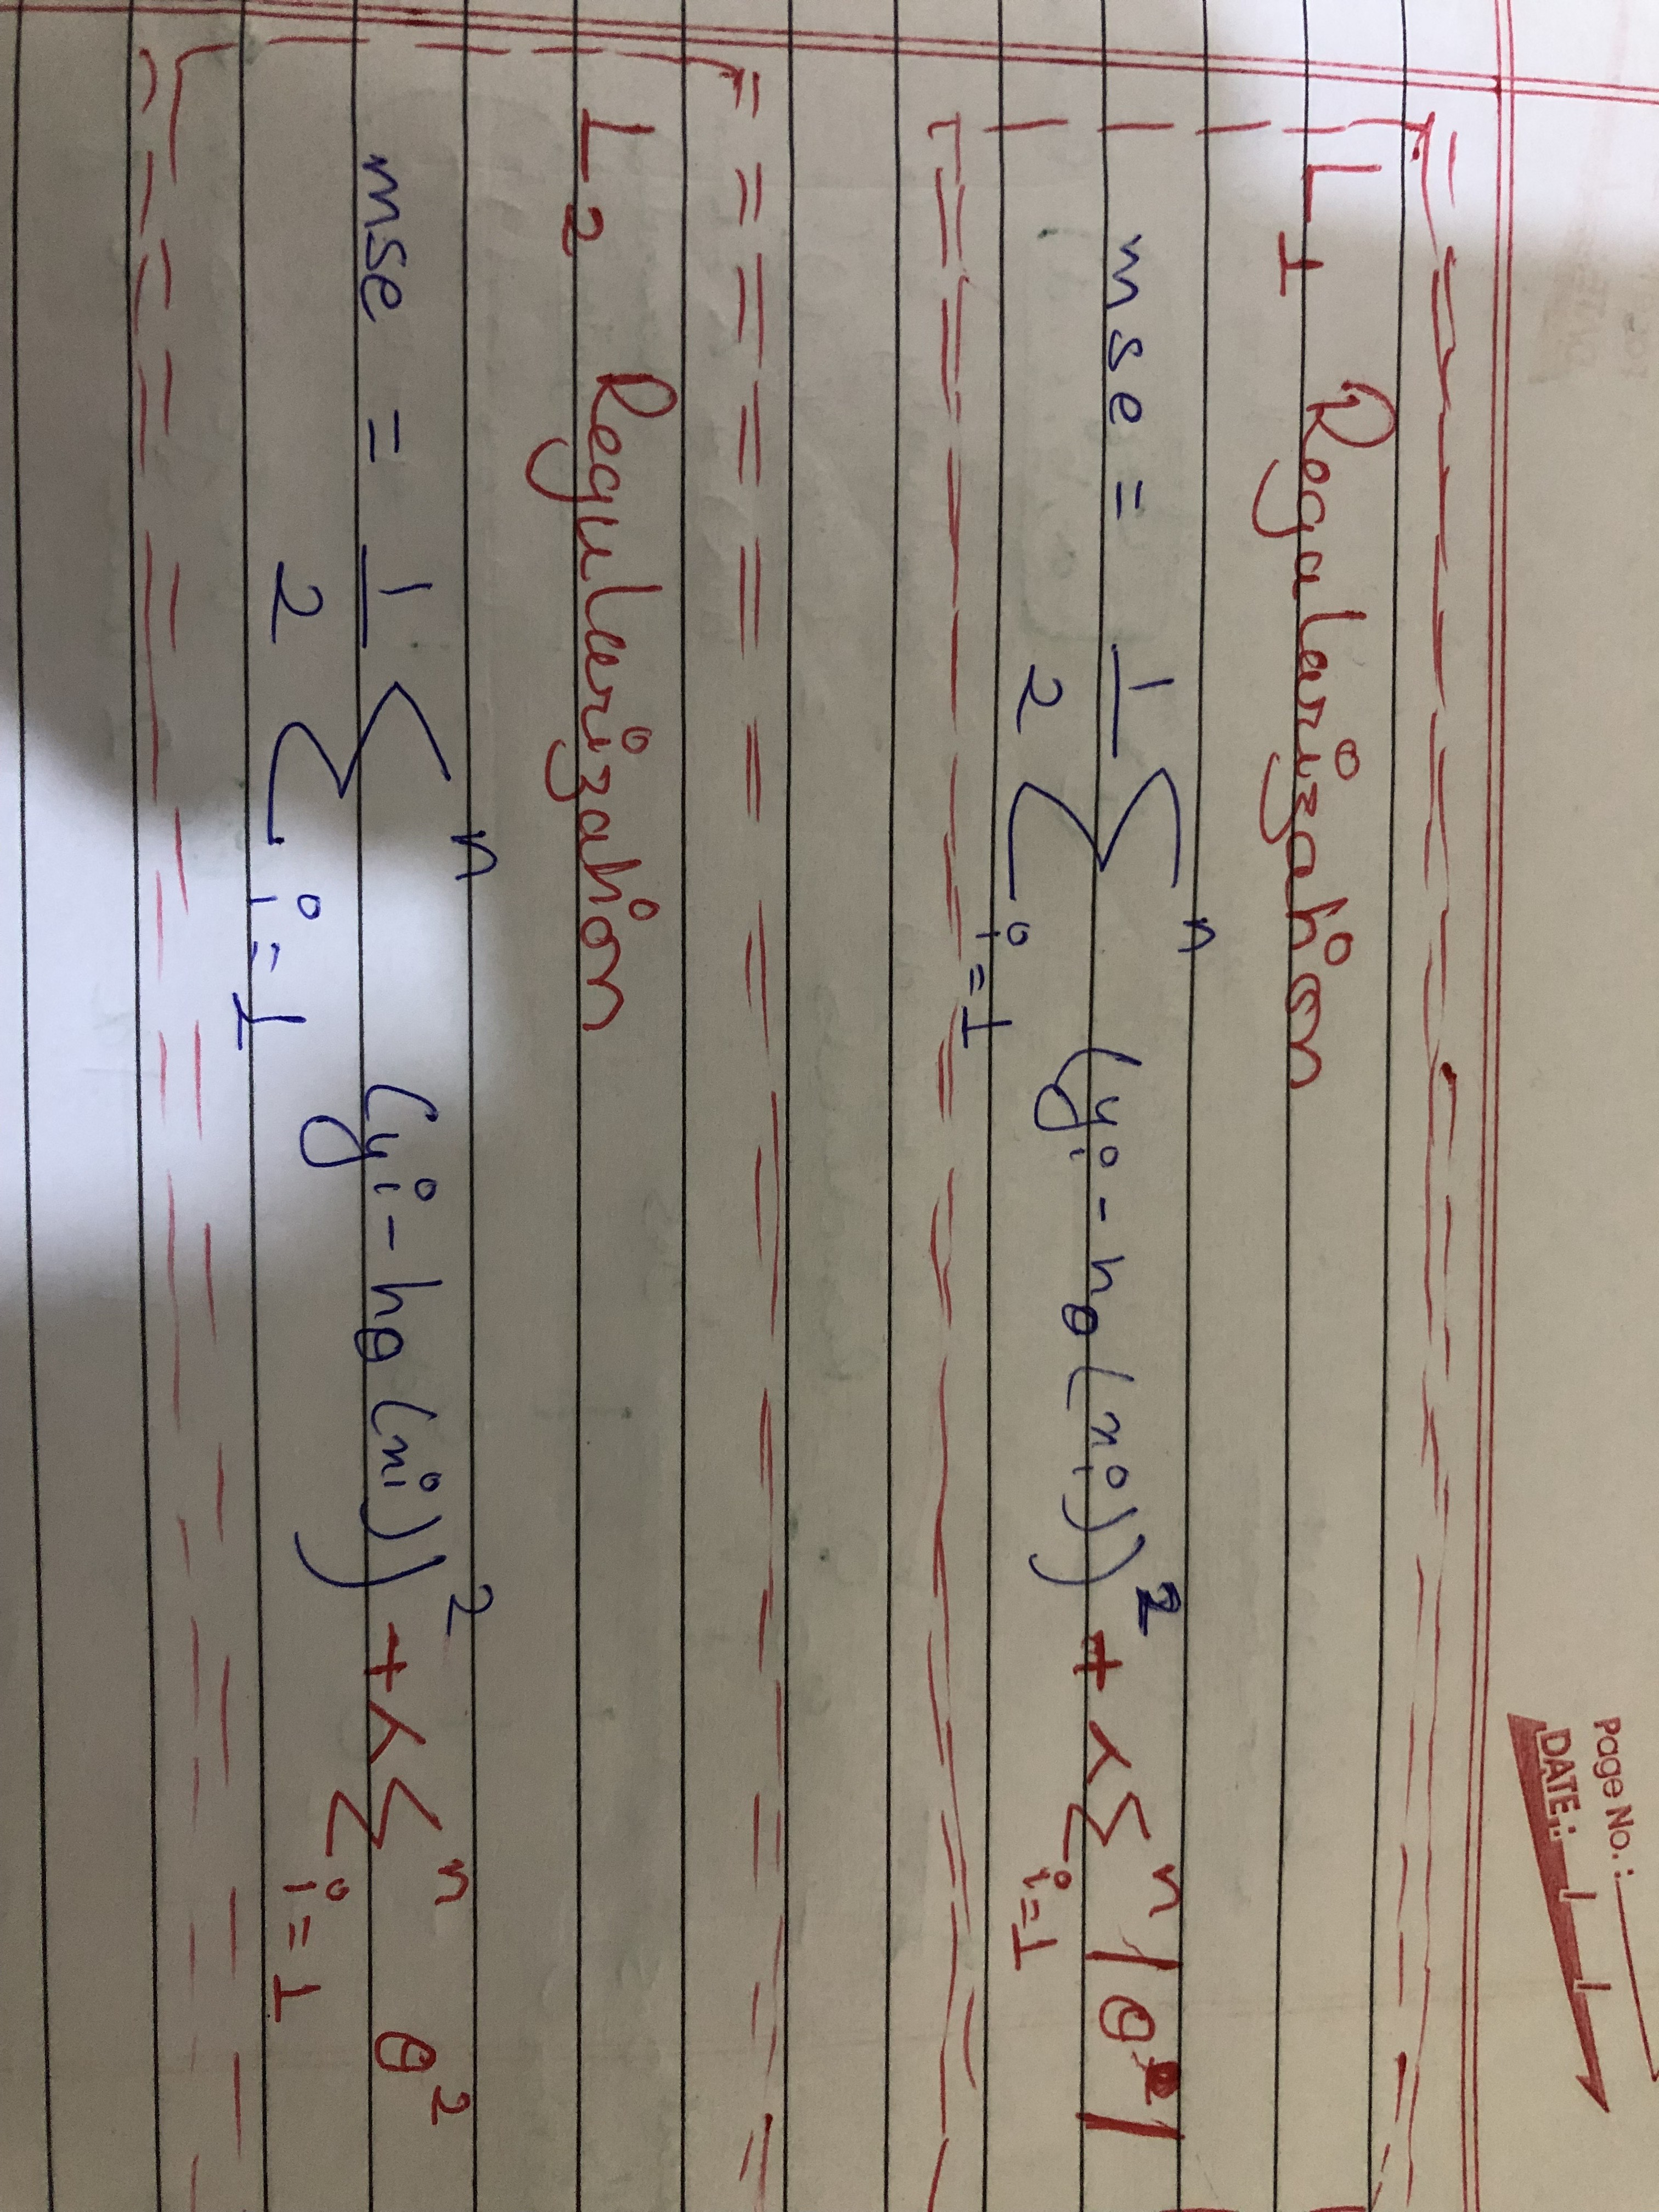 Page No.:
DATE: / /
L1 Regularization
mse = 1/2 Σ^n_{i=1} (yi - hθ(xi))^2 + λ Σ^n_{i=1} |θ|
L2 Regularization
mse = 1/2 Σ^n_{i=1} (yi - hθ(xi))^2 + λ Σ^n_{i=1} θ^2